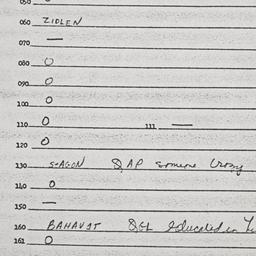 050
060 ZIDLEN
070 —
080 O
090 O
100 O
110 O 111 —
120 O
130 S-AGON & AP someone
140 O
150 —
160 BAHAVIT educated in
161 O